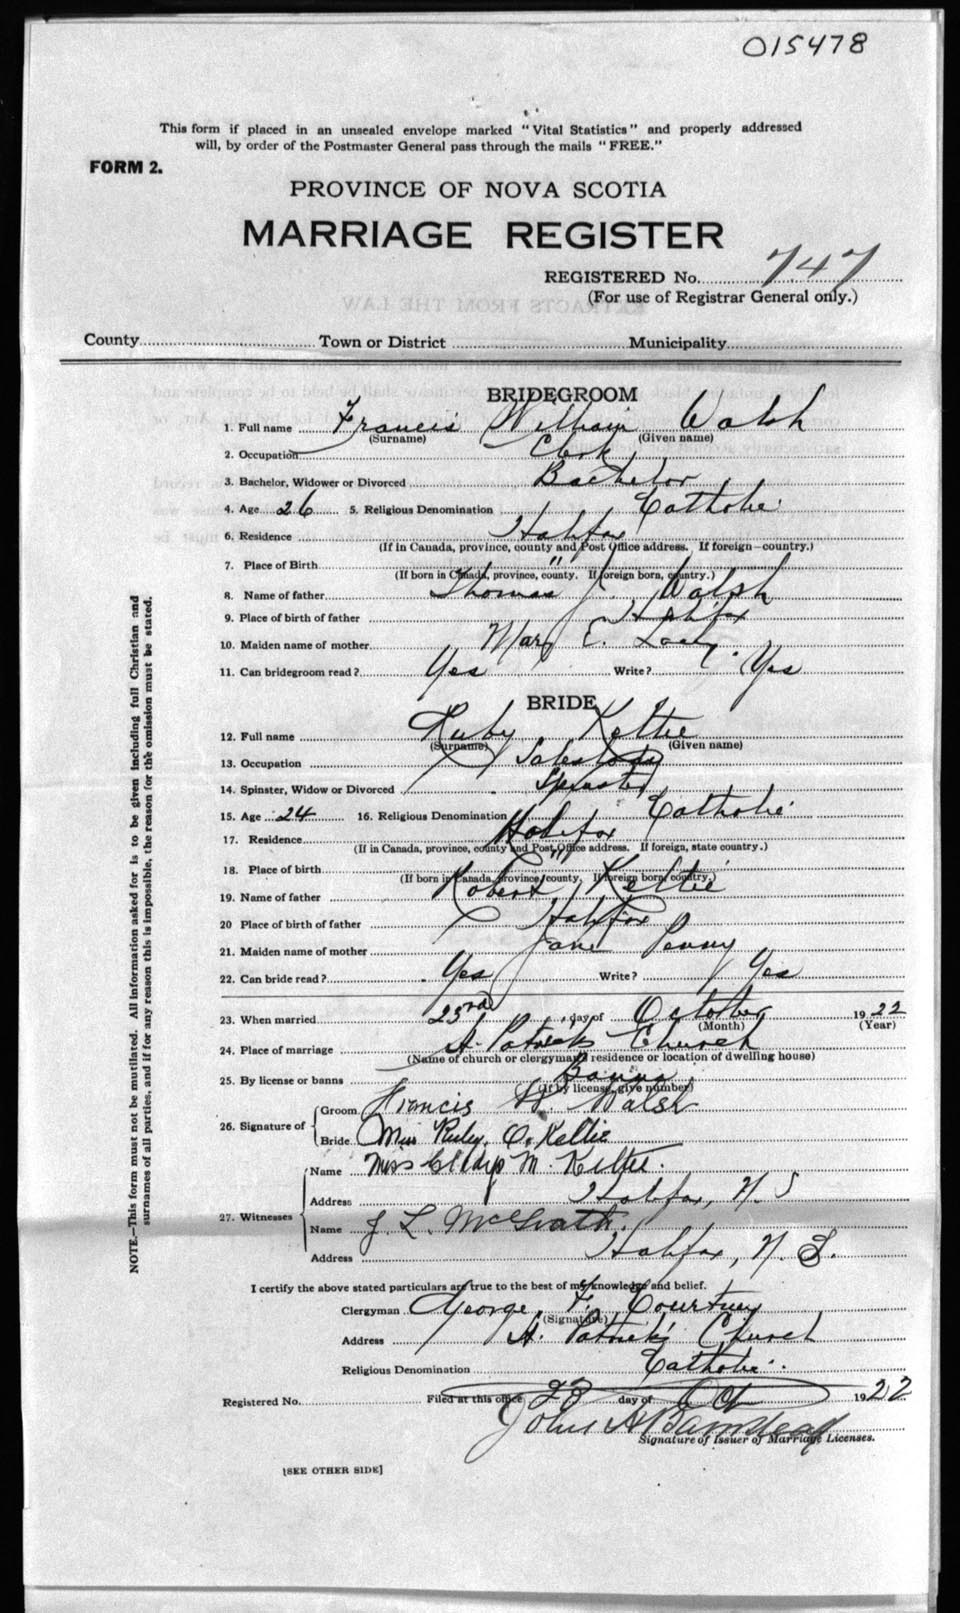 015478
This form if placed in an unsealed envelope marked "Vital Statistics" and properly addressed
will, by order of the Postmaster General pass through the mails "FREE."
FORM 2.
PROVINCE OF NOVA SCOTIA
MARRIAGE REGISTER
REGISTERED No. 747
(For use of Registrar General only.)
County Town or District Municipality
BRIDEGROOM
1. Full name Francis William Walsh
(Surname) (Given name)
2. Occupation Clerk
3. Bachelor, Widower or Divorced Bachelor
4. Age 26 5. Religious Denomination Catholic
6. Residence Halifax
(If in Canada, province, county and Post Office address. If foreign—country.)
7. Place of Birth "
(If born in Canada, province, county. If foreign born, country.)
8. Name of father Thomas J Walsh
9. Place of birth of father Halifax
10. Maiden name of mother Mary E.
11. Can bridegroom read? Yes Write? Yes
BRIDE
12. Full name Ruby Keltie
(Surname) (Given name)
13. Occupation Saleslady
14. Spinster, Widow or Divorced Spinster
15. Age 24 16. Religious Denomination Catholic
17. Residence Halifax
(If in Canada, province, county and Post Office address. If foreign, state country.)
18. Place of birth "
(If born in Canada, province, county. If foreign born, country.)
19. Name of father Robert Keltie
20 Place of birth of father Halifax
21. Maiden name of mother Jane Penny
22. Can bride read? Yes Write? Yes
23. When married 23rd day of October 1922
(Month) (Year)
24. Place of marriage St. Patrick's Church
(Name of church or clergyman's residence or location of dwelling house)
25. By license or banns Banns
(If by license, give number)
26. Signature of Groom Francis W. Walsh
Bride Miss Ruby. O. Keltie
27. Witnesses Name Miss Gladys M. Keltie.
Address Halifax, N. S
Name J. L. McGrath.
Address Halifax, N. S.
I certify the above stated particulars are true to the best of my knowledge and belief.
Clergyman George, F. Courtney
(Signature)
Address St. Patrick's Church
Religious Denomination Catholic.
Registered No. Filed at this office 23 day of Oct 1922
John A Barnstead
Signature of Issuer of Marriage Licenses.
[SEE OTHER SIDE]
NOTE.—This form must not be mutilated. All information asked for is to be given including full Christian and
surnames of all parties, and if for any reason this is impossible, the reason for the omission must be stated.